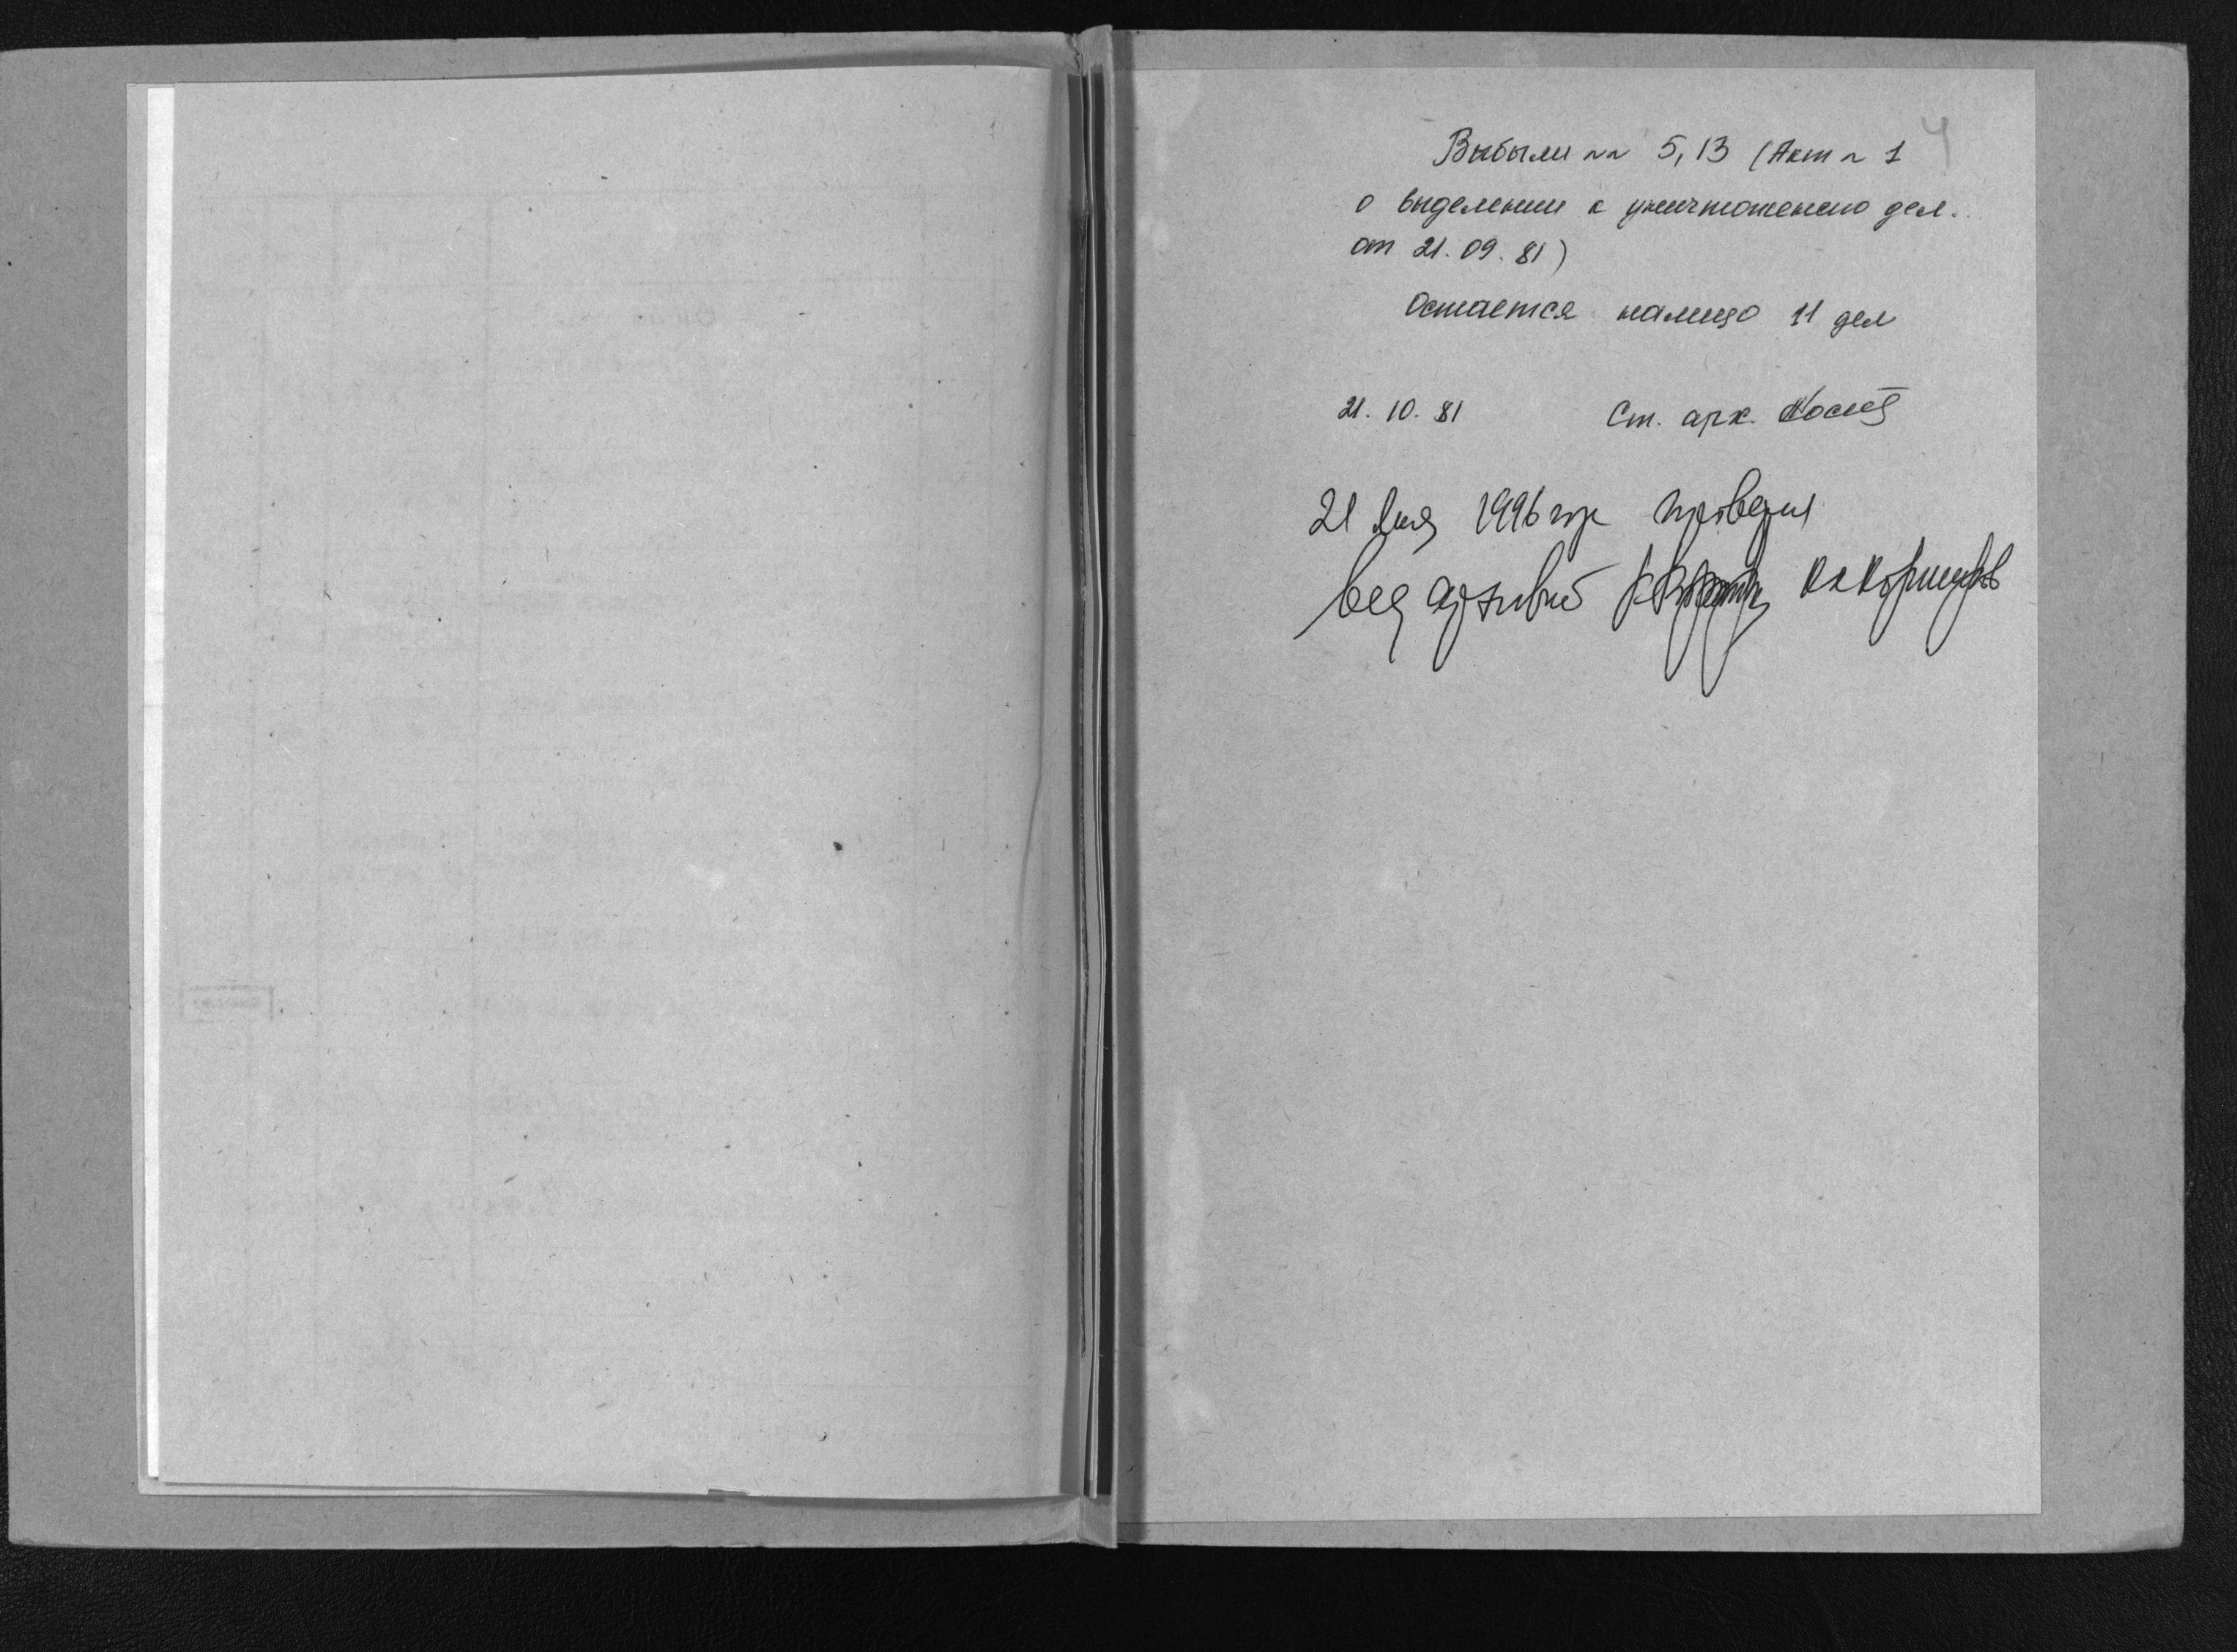 4
Выбыли №№ 5, 13 (Акт № 1
о выделении к уничтожению дел.
от 21.09.81)
Остается налицо 11 дел
21.10.81 Ст. арх.
21 1996 года проверил
вед архивист